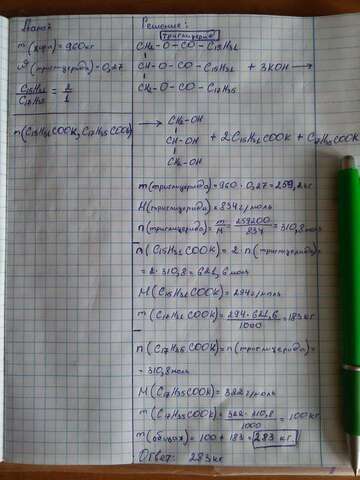 Дано:
m(жира) = 960 кг
ω(триглицерида) = 0,27
C₁₅H₃₁ / C₁₇H₃₅ = 2 / 1
m(C₁₅H₃₁COOK, C₁₇H₃₅COOK)
Решение:
триглицерид
CH₂ - O - CO - C₁₅H₃₁
CH - O - CO - C₁₅H₃₁ + 3KOH →
CH₂ - O - CO - C₁₇H₃₅
→ CH₂-OH
CH-OH + 2C₁₅H₃₁COOK + C₁₇H₃₅COOK
CH₂-OH
m(триглицерида) = 960 · 0,27 = 259,2 кг
M(триглицерида) = 834 г/моль
n(триглицерида) = m / M = 259200 / 834 = 310,8 моль
n(C₁₅H₃₁COOK) = 2 · n(триглицерида) =
= 2 · 310,8 = 621,6 моль
M(C₁₅H₃₁COOK) = 294 г/моль
m(C₁₅H₃₁COOK) = 294 · 621,6 / 1000 = 183 кг
n(C₁₇H₃₅COOK) = n(триглицерида) =
= 310,8 моль
M(C₁₇H₃₅COOK) = 322 г/моль
m(C₁₇H₃₅COOK) = 322 · 310,8 / 1000 = 100 кг
m(общая) = 100 + 183 = 283 кг.
Ответ: 283 кг